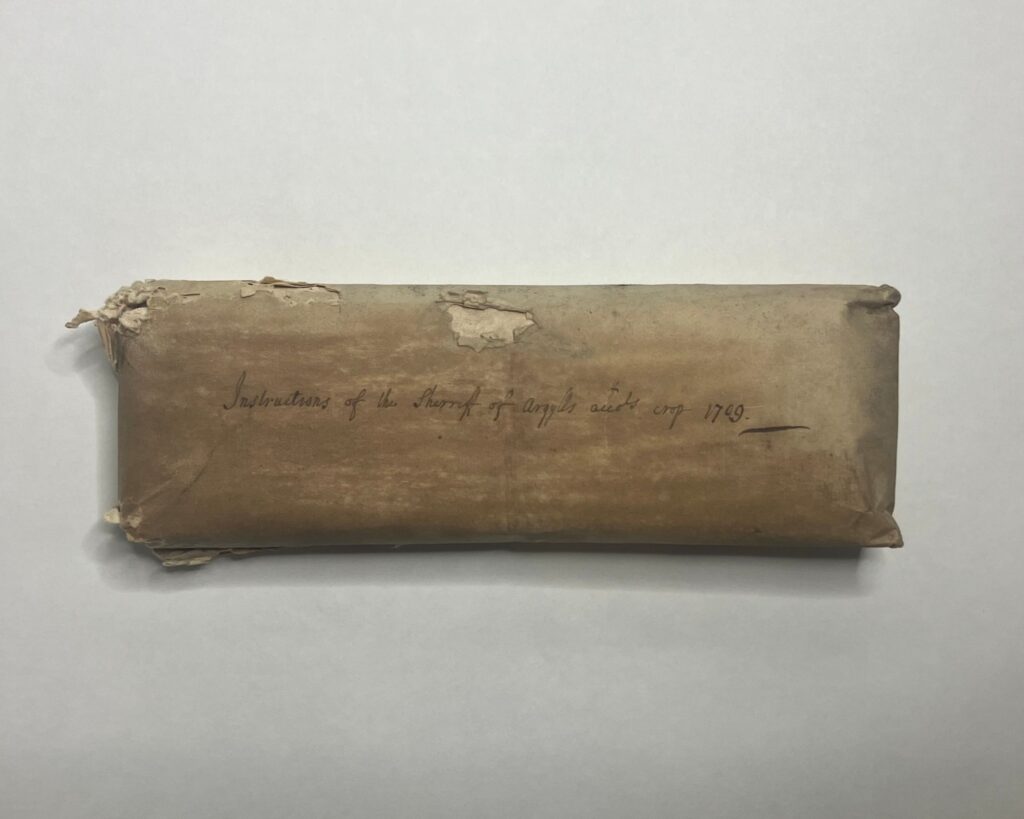 Instructions of the Sherriff of Argyls accots crop 1709.